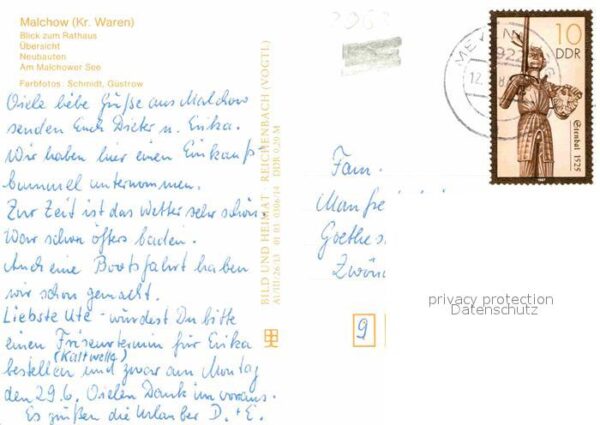 Malchow (Kr. Waren)
Blick zum Rathaus
Übersicht
Neubauten
Am Malchower See
Farbfotos Schmidt, Güstrow
Viele liebe Grüße aus Malchow
senden Euch Dieter u. Erika.
Wir haben hier einen Einkaufs
bummel unternommen.
Zur Zeit ist das Wetter sehr schön.
War schon öfters baden.
Auch eine Bootsfahrt haben
wir schon gemacht.
Liebste Ute – würdest Du bitte
einen Friseurtermin für Erika
(Kaltwelle)
bestellen und zwar am Montag
den 29.6. Vielen Dank im voraus.
Es grüßen die Urlauber D. + E.
BILD UND HEIMAT REICHENBACH (VOGTL)
A1/III/26/13 01 03 0306/14 DDR 0,20 M
10
DDR
1525
Fam.
Manfre
Goethes
Zwön
9
privacy protection
Datenschutz